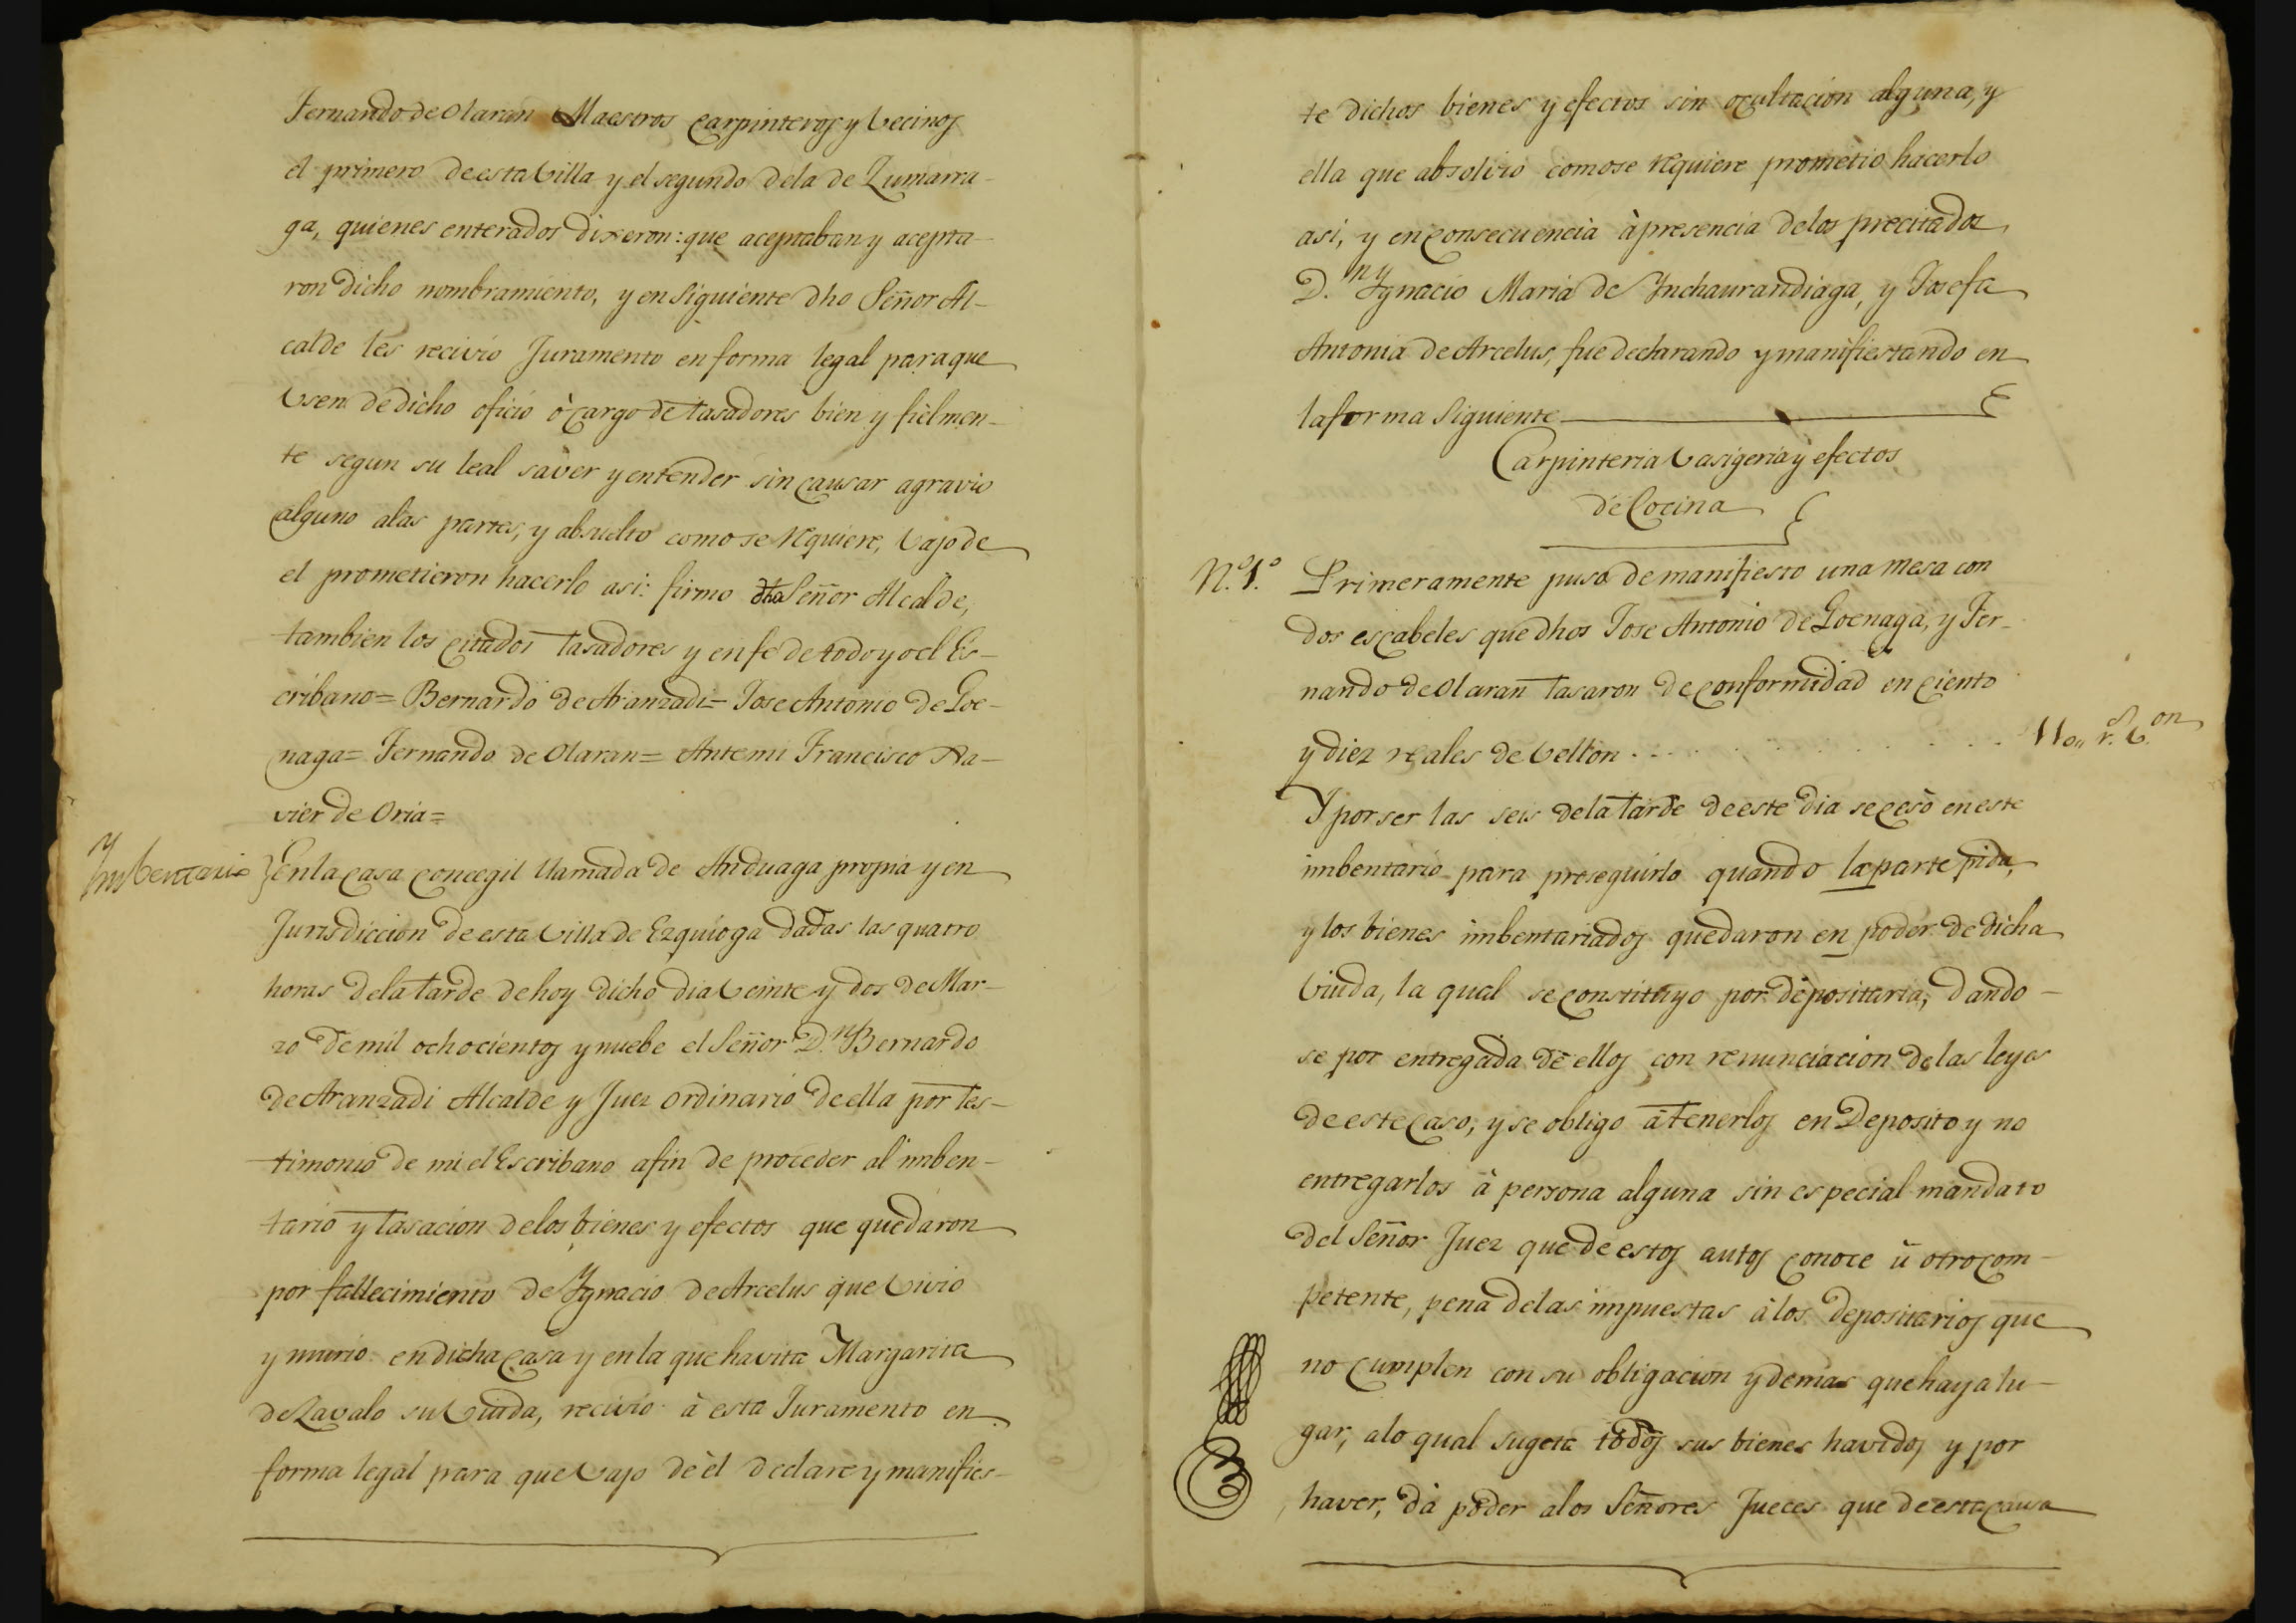 Fernando de Olaran Maestros Carpinteros y Vecinos
el primero de esta Villa y el segundo de la de Zumarra-
ga, quienes enterados dixeron: que aceptaban y acepta-
ron dicho nombramiento, y en siguiente dho Señor Al-
calde les recivio Juramento en forma legal para que
Vsen de dicho oficio ò cargo de tasadores bien y fielmen-
te segun su leal saver y entender sin causar agravio
alguno alas partes, y absuelto como se requiere, vajo de
el prometieron hacerlo asi: firmo dho Señor Alcalde,
tambien los citados tasadores y en fé de todo yo el Es-
cribano = Bernardo de Aranzadi = Jose Antonio de Goe-
naga = Fernando de Olaran = Ante mi Francisco Xa-
vier de Oria =
Ymbentario } En la casa concegil llamada de Anduaga propia y en
Jurisdiccion de esta Villa de Ezquioga dadas las quatro
horas de la tarde de hoy dicho dia veinte y dos de Mar-
zo de mil ochocientos y nuebe el Señor D.n Bernardo
de Aranzadi Alcalde y Juez ordinario de ella por tes-
timonio de mi el Escribano afin de proceder al imben-
tario y tasacion delos bienes y efectos que quedaron
por fallecimiento de Ygnacio de Arcelus que vivio
y murio en dicha casa y en la que havita Margarita
de Zavalo su Viuda, recivio à esta Juramento en
forma legal para que vajo de èl declare y manifies-
te dichos bienes y efectos sin ocultacion alguna, y
ella que absolvio como se requiere prometio hacerlo
asi, y en consecuencia à presencia delos precitados
D.n Ygnacio Maria de Ynchaurandiaga, y Josefa
Antonia de Arcelus, fue declarando y manifiestando en
la forma siguiente
Carpinteria Vasigeria y efectos
de Cocina
N.o 1.o Primeramente puso de manifiesto una mesa con
dos escabeles que dhos Jose Antonio de Goenaga, y Fer-
nando de Olaran tasaron de conformidad en ciento
y diez reales de vellon . . . . . . . . . . 110,, r.s v.on
Y por ser las seis de la tarde de este dia se cesò en este
imbentario para proseguirlo quando la parte pida,
y los bienes imbentariados quedaron en poder de dicha
viuda, la qual se constituyo por depositaria, dando-
se por entregada de ellos con renunciacion de las leyes
de este caso, y se obligo à tenerlos en Deposito y no
entregarlos à persona alguna sin especial mandato
del Señor Juez que de estos autos conoce ù otro com-
petente, pena de las impuestas à los depositarios que
no cumplen con su obligacion y demas que haya lu-
gar, alo qual sugeta todos sus bienes havidos y por
haver, dà poder alos Señores Jueces que de esta causa